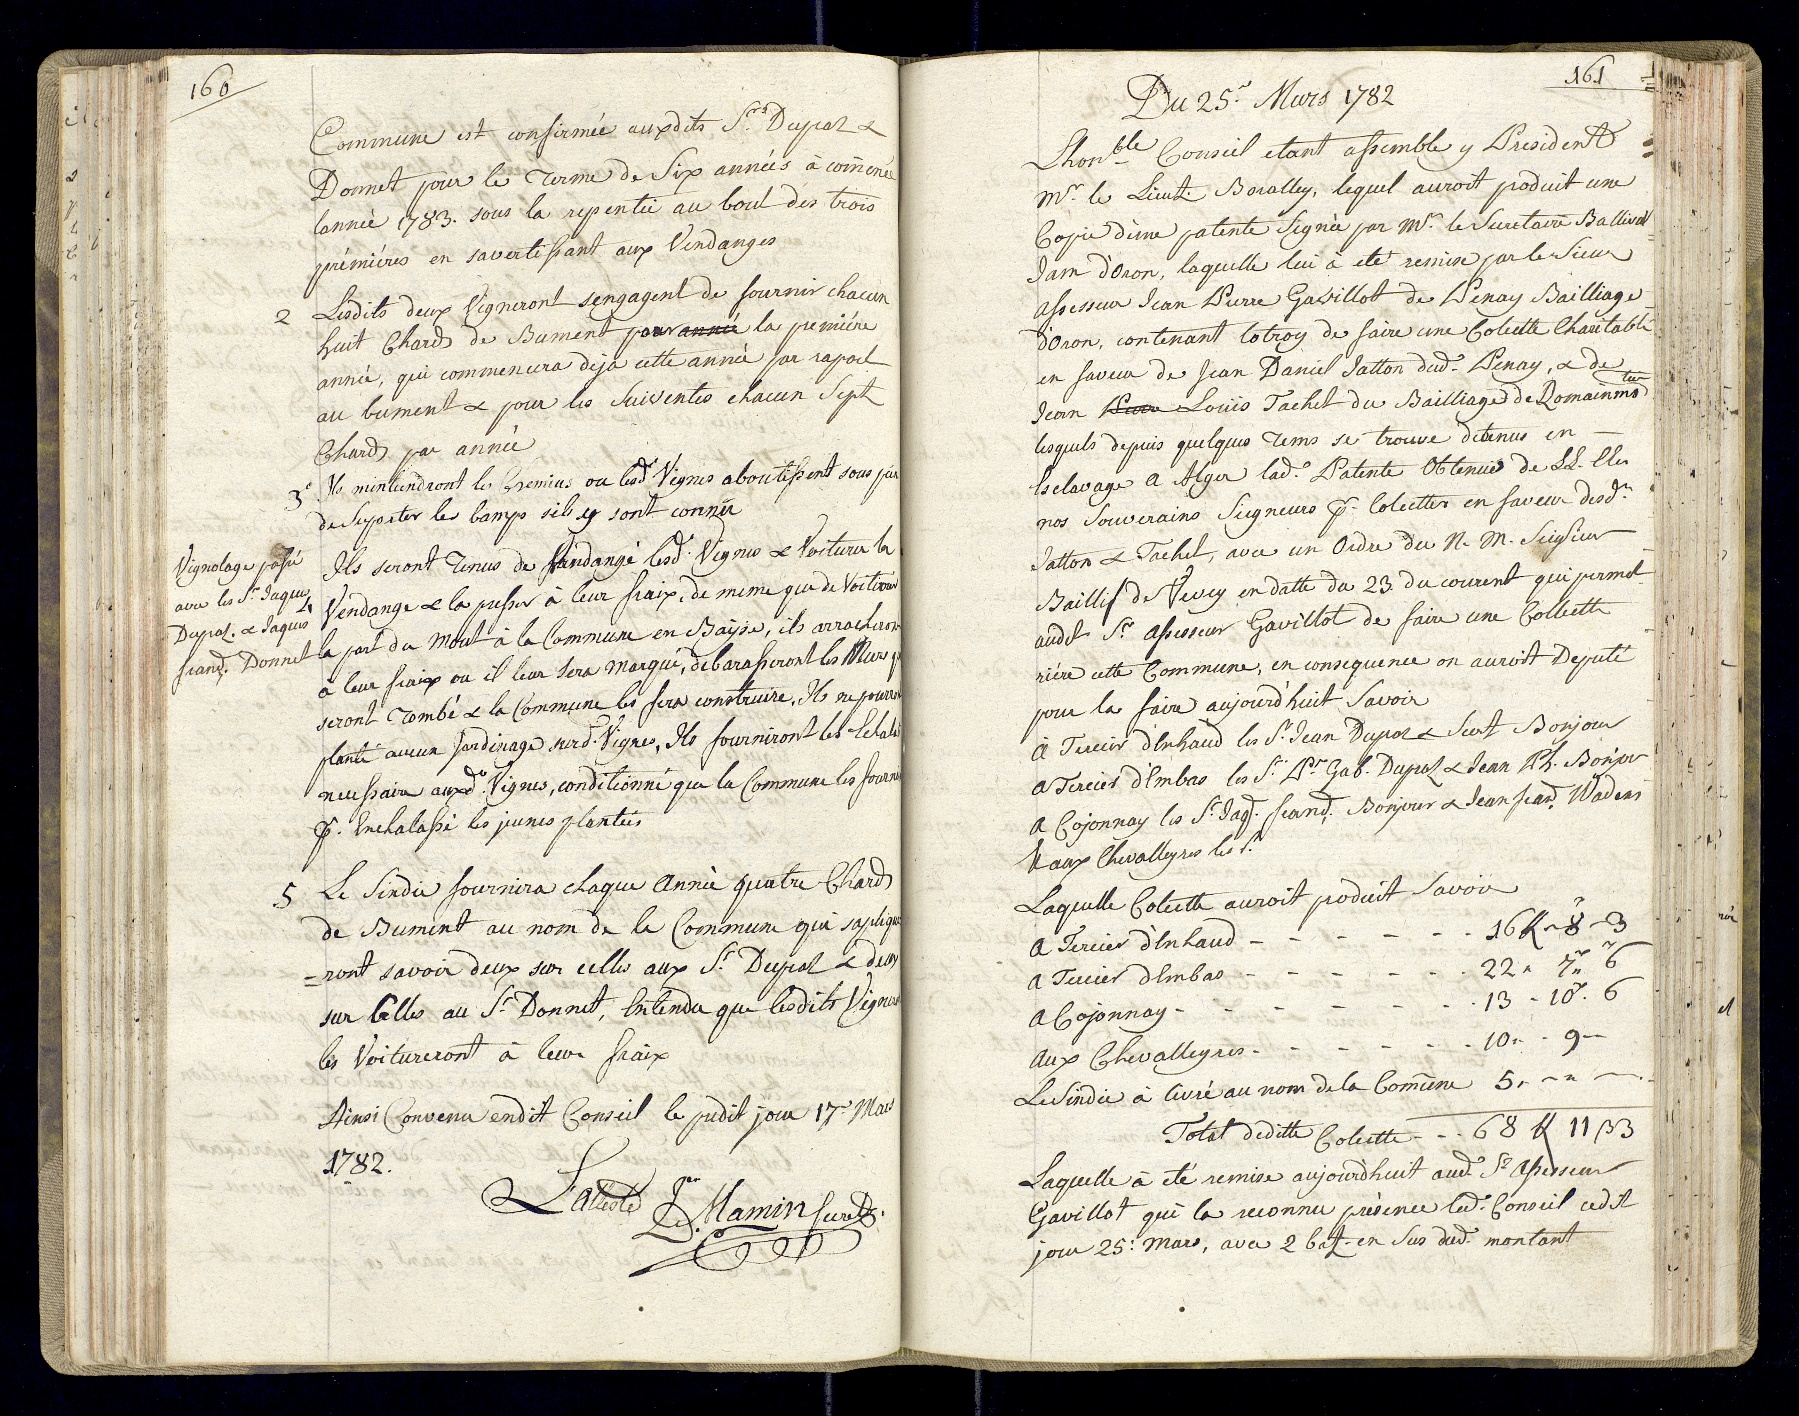 160
Commune est confirmée auxdits Srs. Dupoz &
Donnet pour le Terme de Six années à comencé
lannée 1783. sous la repentie au bout des trois
prémiéres en savertissant aux Vendanges
2 Lesdits deux Vigneront sengagent de fournir chacun
huit Chard de Bument pour année la premiére
année, qui commencera deja cette année par raport
au bument & pour les Suiventes chacun Sept
Chard par année
3e. Ils mintiendront les Chemins ou lesd. Vignes aboutissent sous peine
de Suporter les bamps sils y sont connü
Vignolage passé
avec les Sr. Jaques
Dupoz. & Jaques
frand. Donnet
4 Ils seront Tenus de Vendangé lesd. Vignes & Voiturer la
Vendange & la presser à leur fraix, de meme que de Voiturer
la part du Mout à la Commune en Bayse, ils arracheront
à leur fraix ou il leur sera marqué, debarasseront les Murs qui
seront Tombé & la Commune les fera construire, Ils ne pourront
planté aucun Jardinage surd. Vignes, Ils fourniront les Echalas
necessaire auxd. Vignes, conditionné que la Commune les fourni
pr. Enchalassé les jeunes plantées
5 Le Sindic fournira chaque Année quatre Chard
de Bument au nom de la Commune qui saplique=
=ront savoir deux sur celles aux Sr. Dupoz & deux
sur Celles au Sr. Donnet, Entendu que lesdits Vignerons
les Voitureront à leur fraix
Ainsi Convenu endit Conseil le predit jour 17e. Mars
1782.
L'atteste Jn. Ld. Mamin Secret.
161
Du 25e. Mars 1782
Lhonble Conseil etant assemble y Président
Mr. le Lieut. Boralley, lequel auroit produit une
Copie d'une patente Signée par Mr. le Secretaire Ballival
Jam d'Oron, laquelle lui à eté remise par le Sieur
assesseur Jean Pierre Gavillot de Penay Bailliage
d'Oron, contenant lotroy de faire une Colecte Charitable
en faveur de Jean Daniel Jatton dud. Penay, & de
Jean Pierre Louis Tachet du Bailliage de Romainmotier
lesquels depuis quelques Tems se trouve détenus en
Esclavage a Alger lad. Patente Obtenue de LL. EEes
nos Souverains Seigneurs pr. Colecter en faveur desd.
Jatton & Tachet, avec un Ordre du N. M. Seigneur
Baillif de Vevey en datte du 23. du courent qui permet
audt. Sr. Assesseur Gavillot de faire une Collecte
riére cette Commune, en consequence on auroit Deputé
pour la faire aujourd'huit Savoir
à Tercier d'Enhaud les Sr. Jean Dupoz & Secret Bonjour
a Tercier d'Embas les Sr. Pr. Gab. Dupoz & Jean Ph. Bonjour
a Cojonnay les Sr. Jaq. frand. Bonjour & Jean frand. Wadens
& aux Chevalleyres les Sr.
Laquelle Colecte auroit produit Savoir
a Tercier d'Enhaud - - - - - - 16 fl " 8 " 3
a Tercier dEmbas - - - - - - 22 " 7 " 6
a Cojonnay - - - - - - - 13 - 10 . 6
aux Chevalleyres - - - - - - 10 " - 9 -
Le Sindic à livré au nom de la Comune 5. - " -
Total dedette Colecte - - 68 fl 11 ß 3
Laquelle à été remise aujourdhuit aud. Sr. Assesseur
Gavillot qui la reconnu présence led. Conseil cedit
jour 25: Mars, avec 2 batz en Sus dud. montant